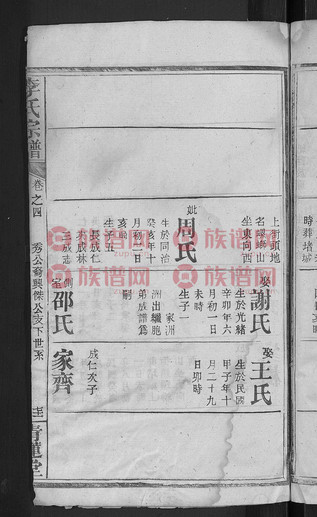 李氏宗譜
卷之四
秀公裔興傑公支下世系
青蓮堂
上街頭地
名
坐東向西
妣周氏
生於同治
癸亥年十
月初二日
亥時
生子五
長成仁
次成林
三成志
娶謝氏
生於光緒
辛卯年六
月初一日
未時
生子一
家洲
洲出繼胞
弟成
嗣
側室邵氏
娶王氏
生於民國
甲子年十
月二十九
日卯時
成仁次子
家齊
時葬
堵城
族譜網
www.zupu.cn